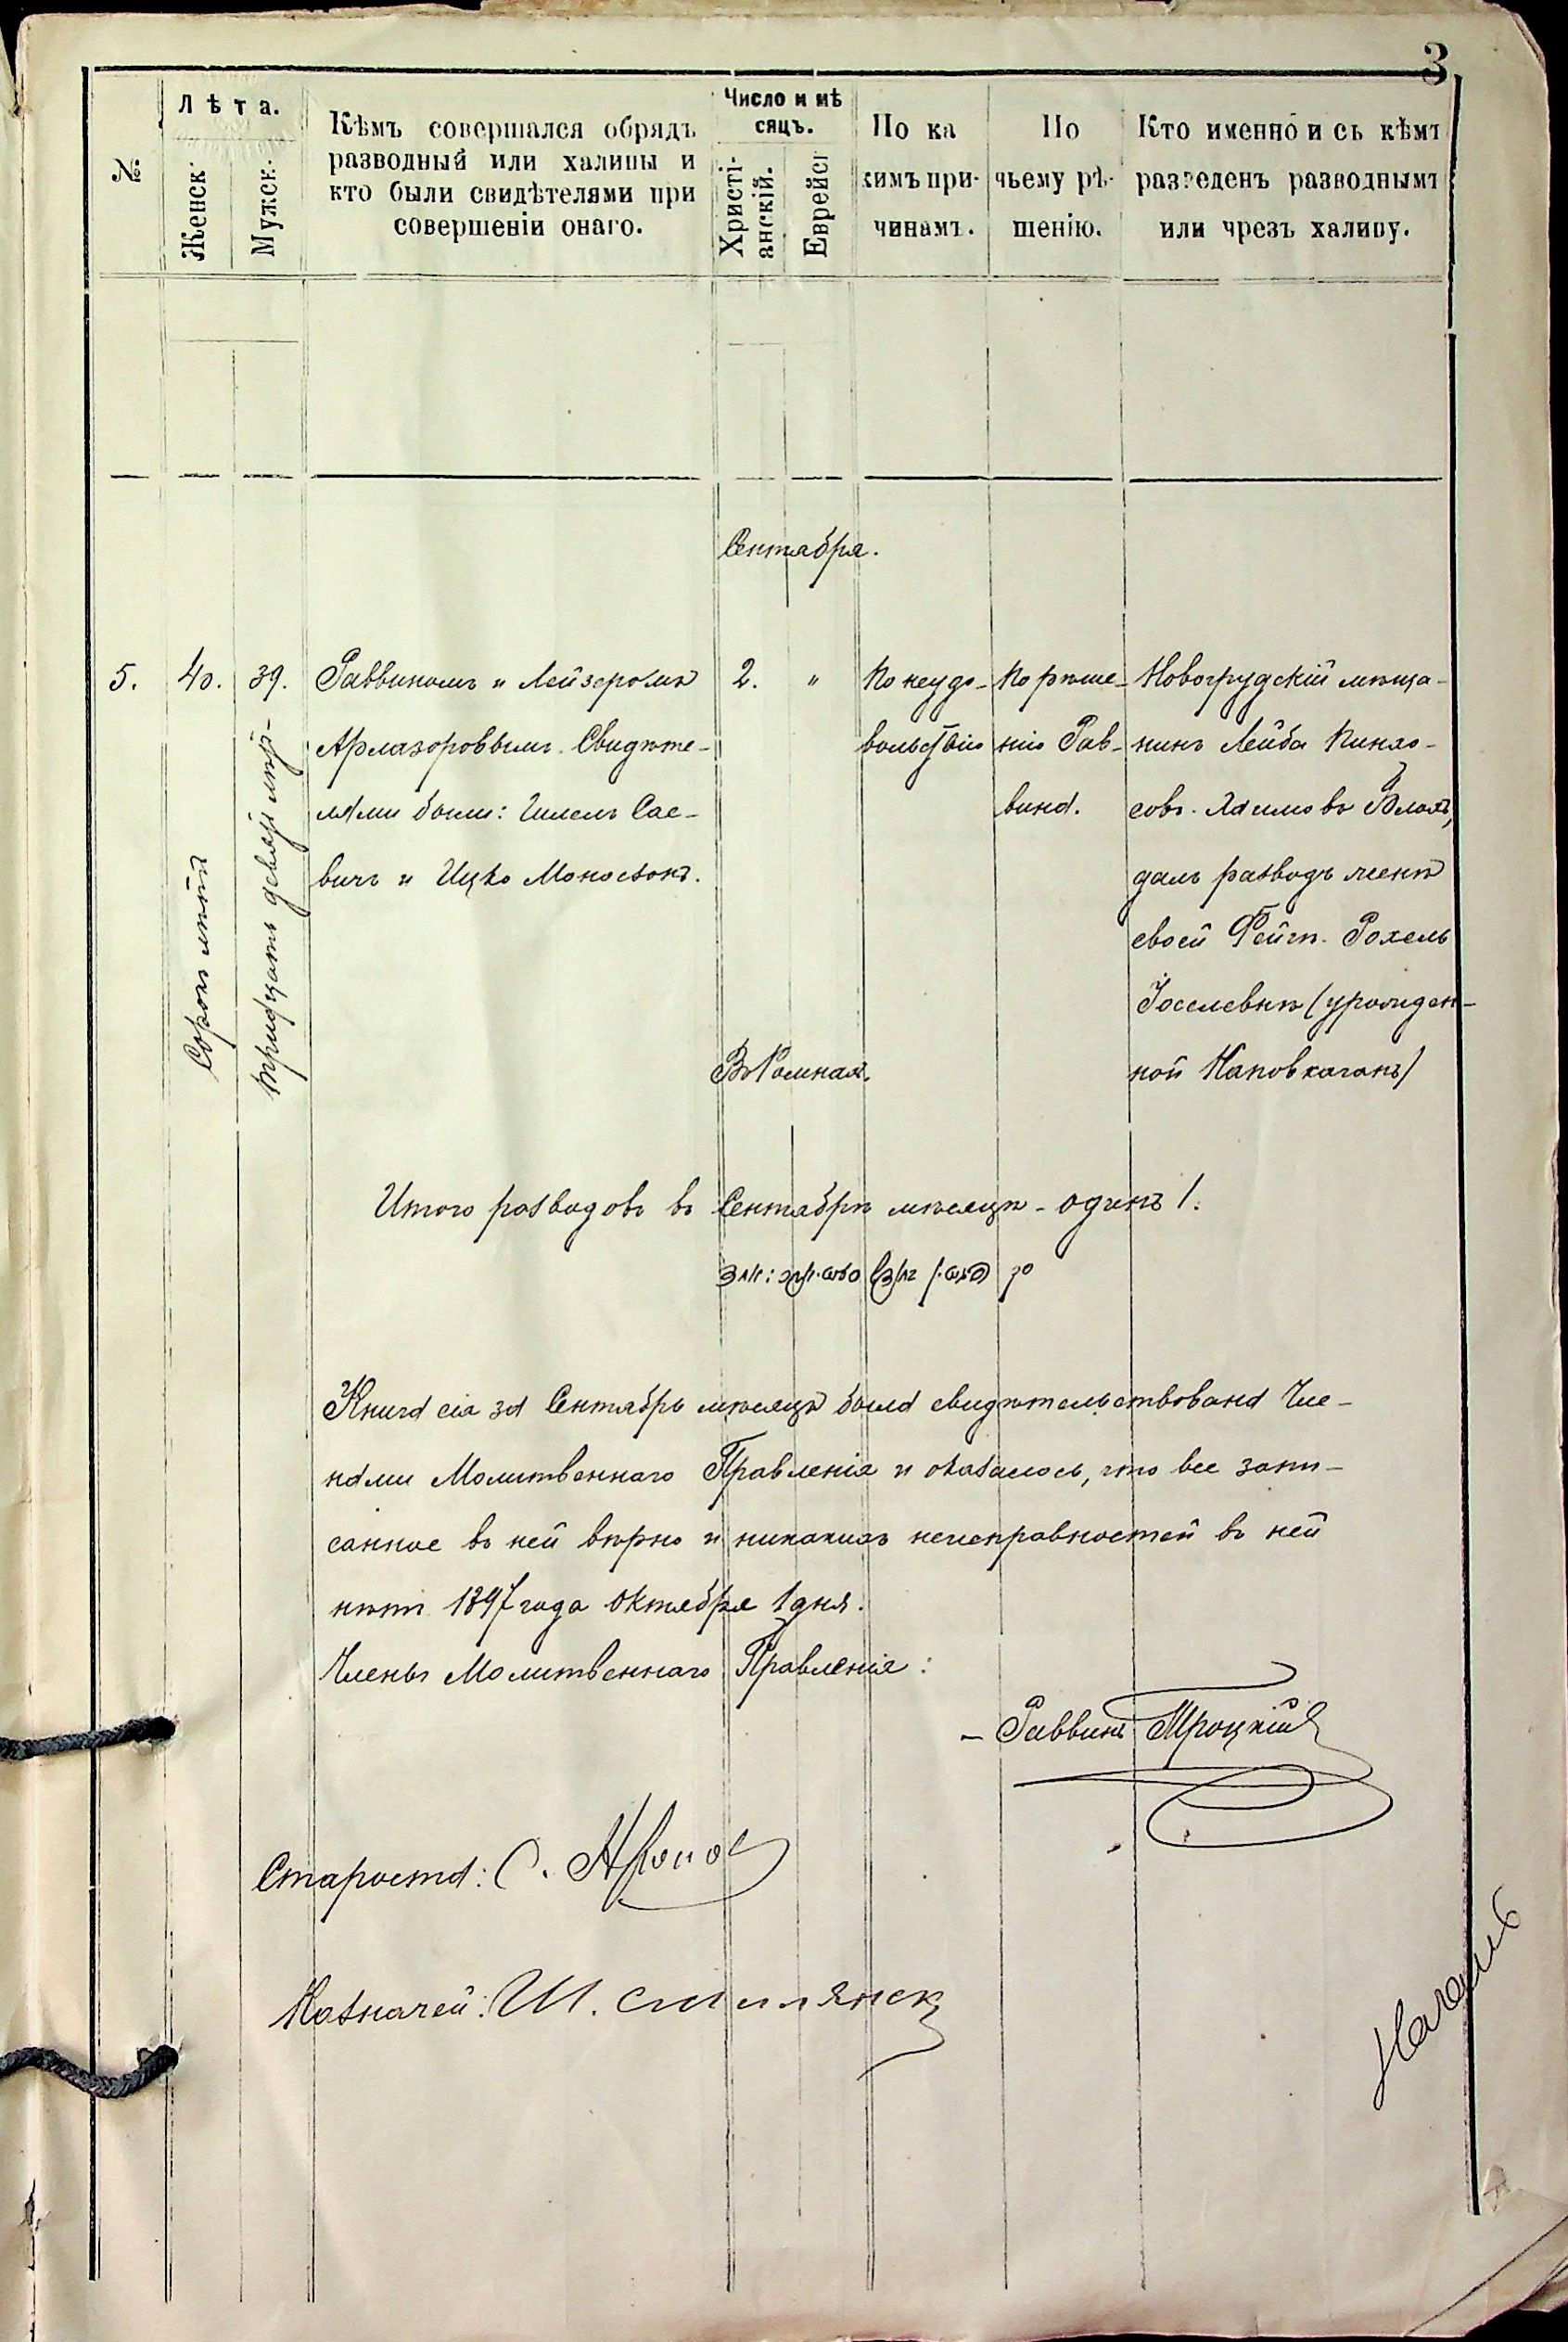 3
№
Лѣта.
Женск.
Мужск.
Кѣмъ совершался обрядъ
разводный или халицы и
кто были свидѣтелями при
совершеніи онаго.
Число и мѣ
сяцъ.
Христі-
анскій.
Еврейск
По ка
кимъ при-
чинамъ.
По
чьему рѣ-
шенію.
Кто именно и съ кѣмъ
разведенъ разводнымъ
или чрезъ халицу.
Сентября.
5.
40.
Сорокъ лѣтъ
39.
тридцать девять лѣтъ
Раввиномъ и Лейзеромъ
Армазоровымъ. Свидѣте-
лями были: Гилель Сае-
вичъ и Ицко Моносзонъ.
2.
"
По неудо-
вольствію
По рѣше-
нію Рав-
вина.
Новогрудскій мѣща-
нинъ Лейба Пинхо-
совъ Хаимовъ
далъ разводъ женѣ
своей Фейгѣ-Рохель
Іоселевнѣ (урожден-
ной)
Въ Ромнахъ.
Итого разводовъ въ Сентябрѣ мѣсяцѣ - одинъ 1.
Книга сія за Сентябрь мѣсяцъ была свидѣтельствована Чле-
нами Молитвеннаго Правленія и оказалось, что все запи-
санное въ ней вѣрно и никакихъ неисправностей въ ней
нѣтъ 1897 года Октября 1 дня.
Члены Молитвеннаго Правленія:
- Раввинъ Троцкій
Староста: С.
Казначей: Ш.